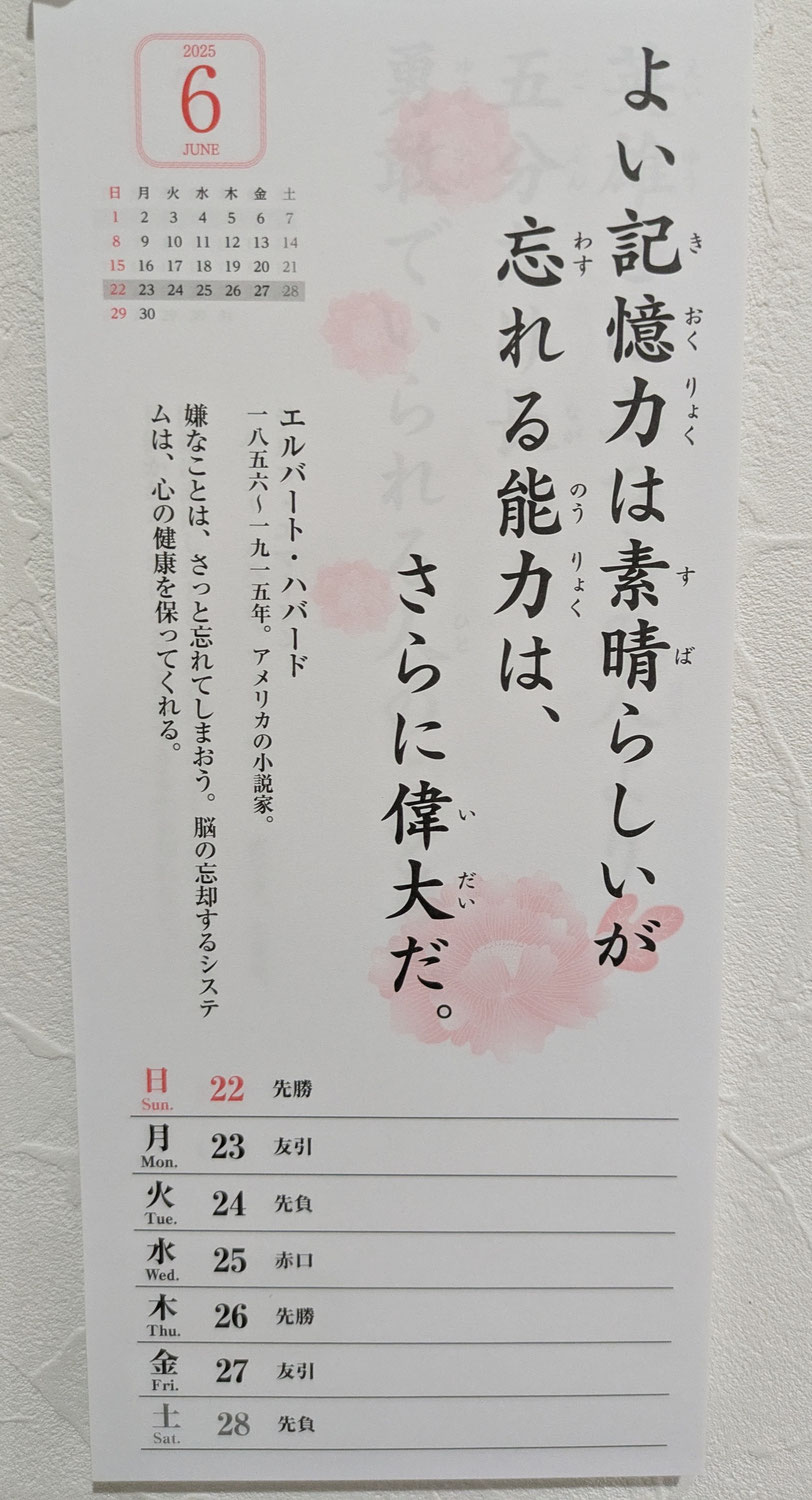 2025
6
JUNE
日 月 火 水 木 金 土
1 2 3 4 5 6 7
8 9 10 11 12 13 14
15 16 17 18 19 20 21
22 23 24 25 26 27 28
29 30
よい記憶力は素晴らしいが
き おく りょく す ば
忘れる能力は、
わす のう りょく
さらに偉大だ。
い だい
エルバート・ハバード
一八五六〜一九一五年。アメリカの小説家。
嫌なことは、さっと忘れてしまおう。脳の忘却するシステ
ムは、心の健康を保ってくれる。
日 Sun. 22 先勝
月 Mon. 23 友引
火 Tue. 24 先負
水 Wed. 25 赤口
木 Thu. 26 先勝
金 Fri. 27 友引
土 Sat. 28 先負